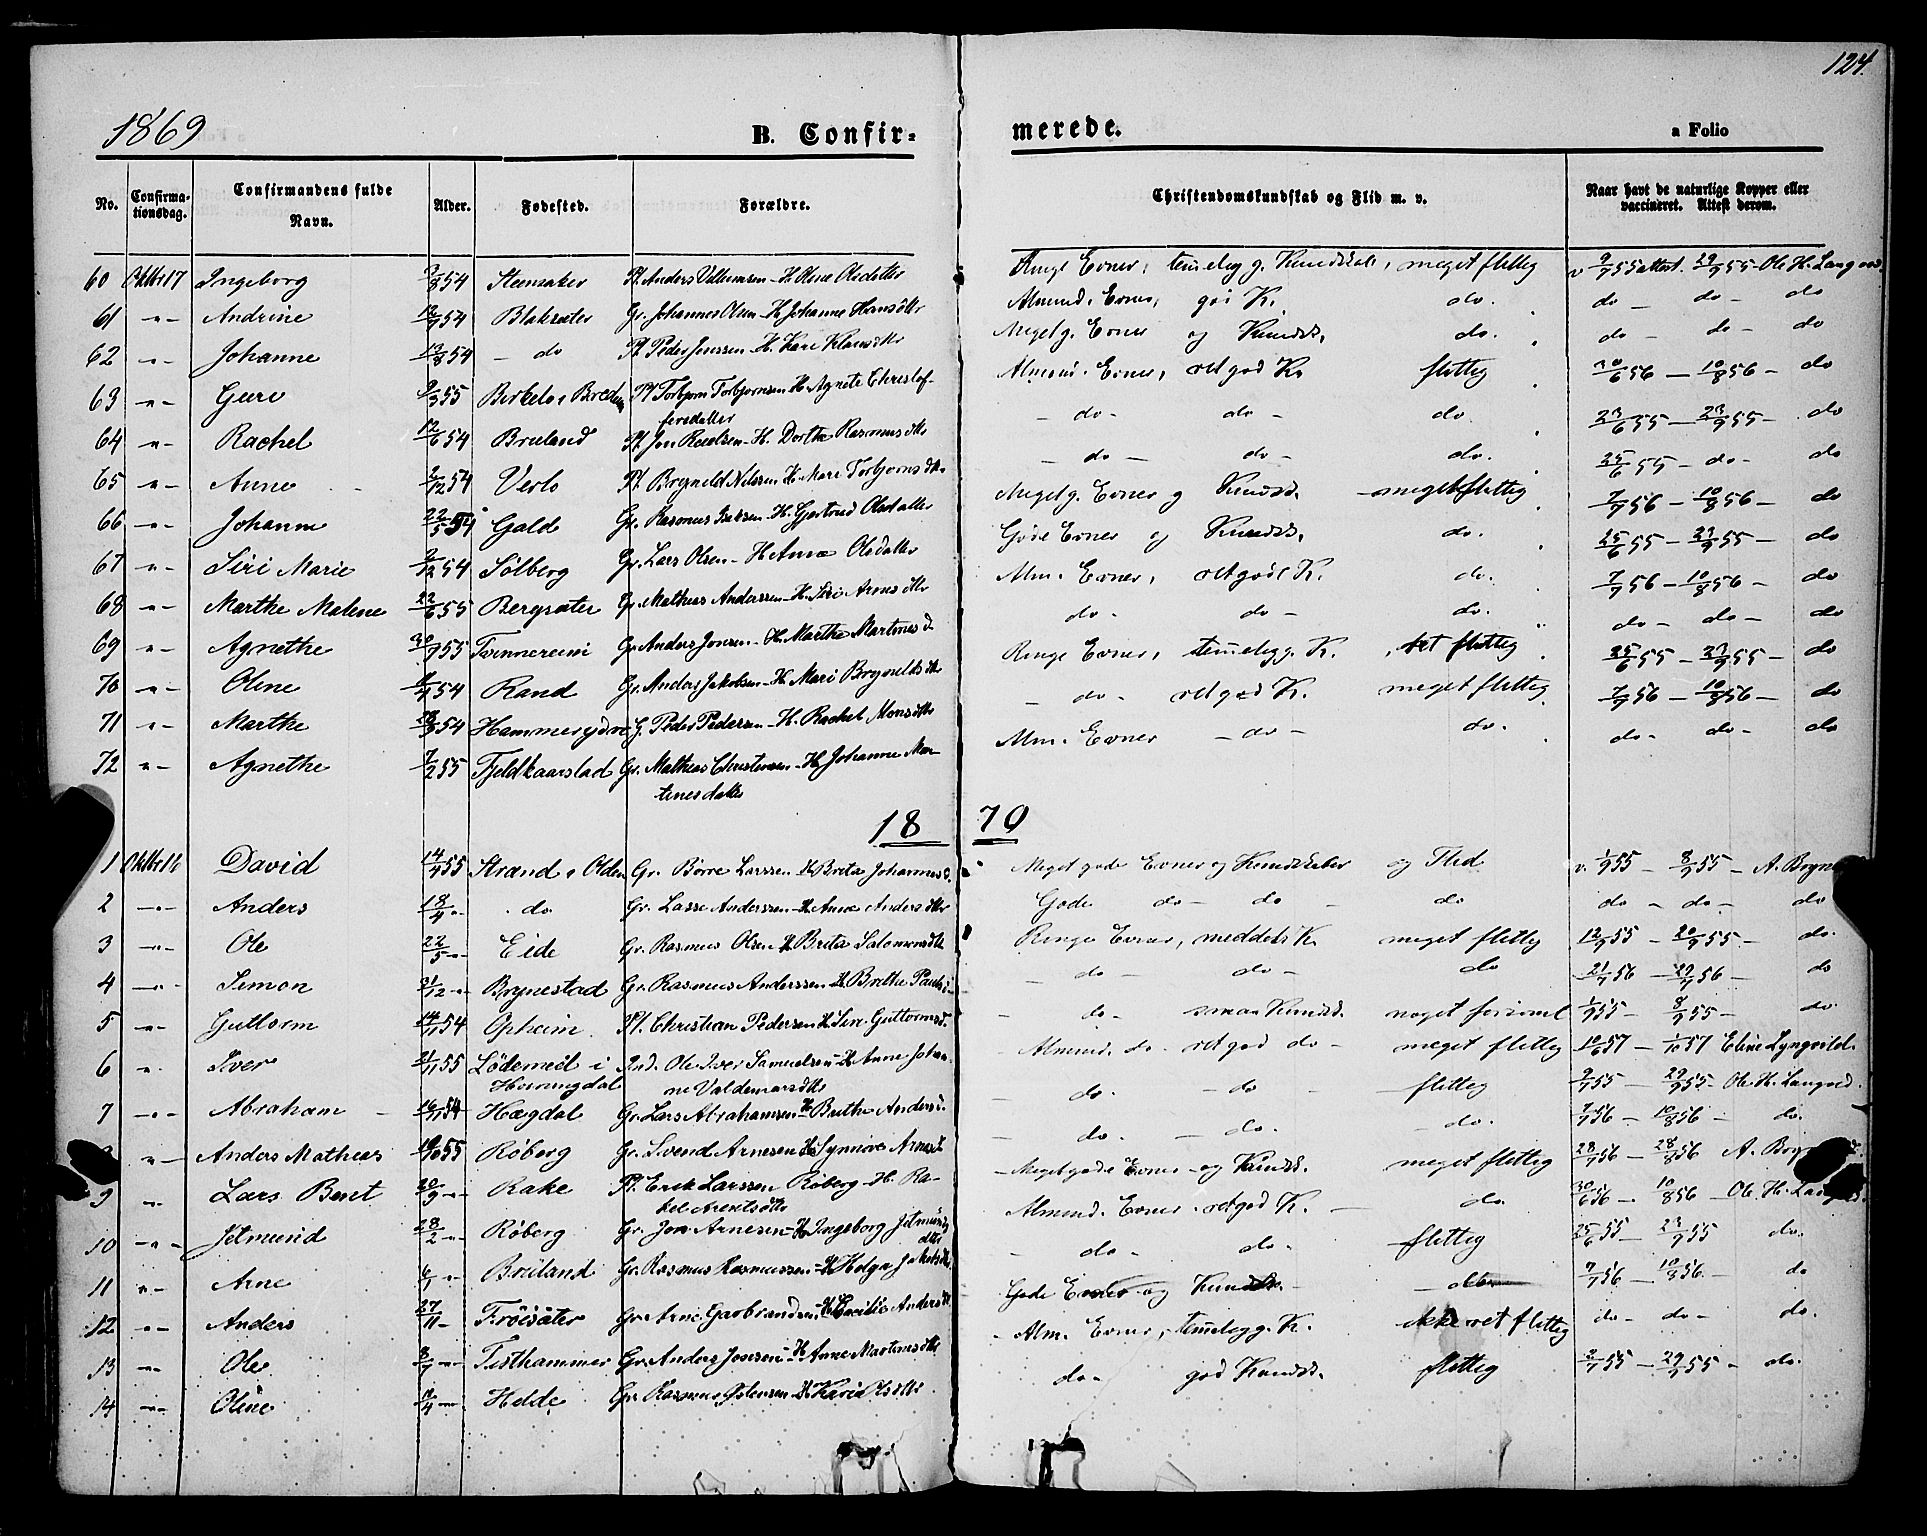 124.
1869
B. Confir-
merede.
a Folio
No. Confirmationsdag. Confirmandens fulde Navn. Alder. Fødested. Forældre. Christendomskundskab og Flid m. v. Naar havt de naturlige Kopper eller vaccineret. Attest derom.
60 Oktbr 17 Ingeborg 2/8 54 Steensaker Pl. Anders Villumsen - H. Olene Olsdatter Ringe Evner, temelig g. Kundskab, meget flittig v 9/7 55 attest. 29/9 55 Ole H. Langvad
61 -"- Andrine 54 Blaksæter Gr. Johannes Olsen - H. Johanne Hansdttr Almind. Evner, god K. do. do - do - do
62 -"- Johanne 13/8 54 - do Pl. Peder Jenssen - H. Kari Klausdttr Meget g. Evner og Kundsk. do. do - do - do
63 -"- Guri 9/3 55 Birkelo i Bredem Pl. Torbjørn Torbjørnsen H. Agnete Christof-
fersdatter Almind. Evner, ret god K. flittig 30/6 56 - 10/8 56 - do
64 -"- Rachel 12/6 54 Bruland Pl. Jon Reealsen - H. Dorthe Rasmusdttr - do - do - do. 23/6 55 - 23/9 55 - do
65 -"- Anne 2/12 54 Verlo Pl. Brynild Nilssen H. Mari Torbjørnsdttr - do - do - do. 25/6 55 - do - do
66 -"- Johanne 22/5 54 Gald Gr. Rasmus Isaksen - H. Gjertrud Olsdatter Meget g. Evner og Kundsk. meget flittig 7/7 56 - 10/8 56 - do
67 -"- Siri Marie 2/12 54 Sølberg Gr. Lars Olsen - H. Anna Olsdatter Gode Evner og Kundsk. do. 25/6 55 - 23/9 55 - do
68 -"- Marthe Malene 22/6 55 Bergsæter Gr. Mathias Anderssen - H. Siri Arnesdttr Alm. Evner, ret godt K. do. 7/7 56 - 10/8 56 - do
69 -"- Agnethe 30/7 55 Tvinnereim Gr. Anders Jonsen - H. Marthe Martinesd. do - do - do. do - do - do
70 -"- Olene 54 Rand Gr. Anders Jakobsen - H. Mari Brynildsdttr Ringe Evner, temelig g. K. ret flittig 25/6 55 - 23/9 55 - do
71 -"- Marthe 54 Hammersydre G. Peder Pedersen - H. Rachel Monsdttr - do - ret god K. meget flittig 7/7 56 - 10/8 56 - do
72 -"- Agnethe 7/2 55 Fjeldkaarstad Gr. Mathias Christensen - H. Johanne Mar-
tinesdatter Alm. Evner - do - do. do - do - do
18 70
1 Oktbr 16 David 14/4 55 Strand i Olden Gr. Børre Larssen H. Brita Johannesd. Meget gode Evner og Kundskaber og Flid v. 1/9 55 - 8/9 55 - A. Bryne
2 -"- Anders 18/4 -"- do Gr. Lasse Anderssen - H. Anne Andersdttr Gode do - do - do do - do - do
3 -"- Ole 22/5 -"- Eide Gr. Rasmus Olsen H. Brita Salomonsdttr Ringe Evner, meddels K. meget flittig 12/9 55 - 20/9 55 - do.
4 -"- Simon 31/12 -"- Brynestad Gr. Rasmus Anderssen H. Brithe Paulsd. - do - do - do 21/7 56 - 29/7 56 - do
5 -"- Guttorm 14/11 54 Opheim Pl. Christian Pedersen H. Siri Guttormsd. - do - smaa Kundsk. noget forsømt 1/9 55 - 8/9 55 - do.
6 -"- Iver 21/11 55 Lødemel i
Hornngdal Ind. Ole Iver Samuelsen - H. Anne Johan-
ne Valdemarsdttr Almind. do - ret god do - meget flittig 10/6 57 - 1/10 57 Eline Lyngvild
7 -"- Abraham 16/11 54 Hægdal Gr. Lars Abrahamsen H. Brithe Andersd. do. - do - flittig 9/7 55 - 29/9 55 - Ole H. Langvad
-"- Anders Mathias 19/10 55 Røberg Gr. Svend Arnesen H. Synnøve Arnesd. - do. - do. - do. 7/7 56 - 10/8 56 - do.
9 -"- Lars Bent 20/9 -"- Rake Pl. Erik Larssen Røberg - H. Ra-
kel Arentsdttr Meget gode Evner og Kundsk. meget flittig 28/7 56 - 28/8 56 A.
10 -"- Jetmund 28/2 -"- Røberg Gr. Jon Arnesen - H. Ingeborg Jetmunds
dttr Almind. Evner ret god K. - do. 30/6 56 - 10/8 56 - Ole H. Langvad
11 -"- Arne 6/1 -"- Bruland Gr. Rasmus Rasmussen - H. Helga Jakobsdttr - do - do - flittig 25/6 55 - 23/9 55 do.
12 -"- Anders 27/11 - Frøisæter Gr. Arne Garbrandsen H. Cecilie Andersdttr Gode Evner og Kundsk. - 7/7 56 - 10/8 56 - do
13 -"- Ole 8/7 -"- Tisthammer Gr. Anders Jonsen - H. Anne Martinsdttr - Alm. Evner, temelig g. K. ikke ret flittig do - do - do.
14 -"- Oline -"- Helde Gr. Rasmus Østensen H. Kari Olsdttr do - god Kundsk. flittig 55 - 29/9 55 - do.